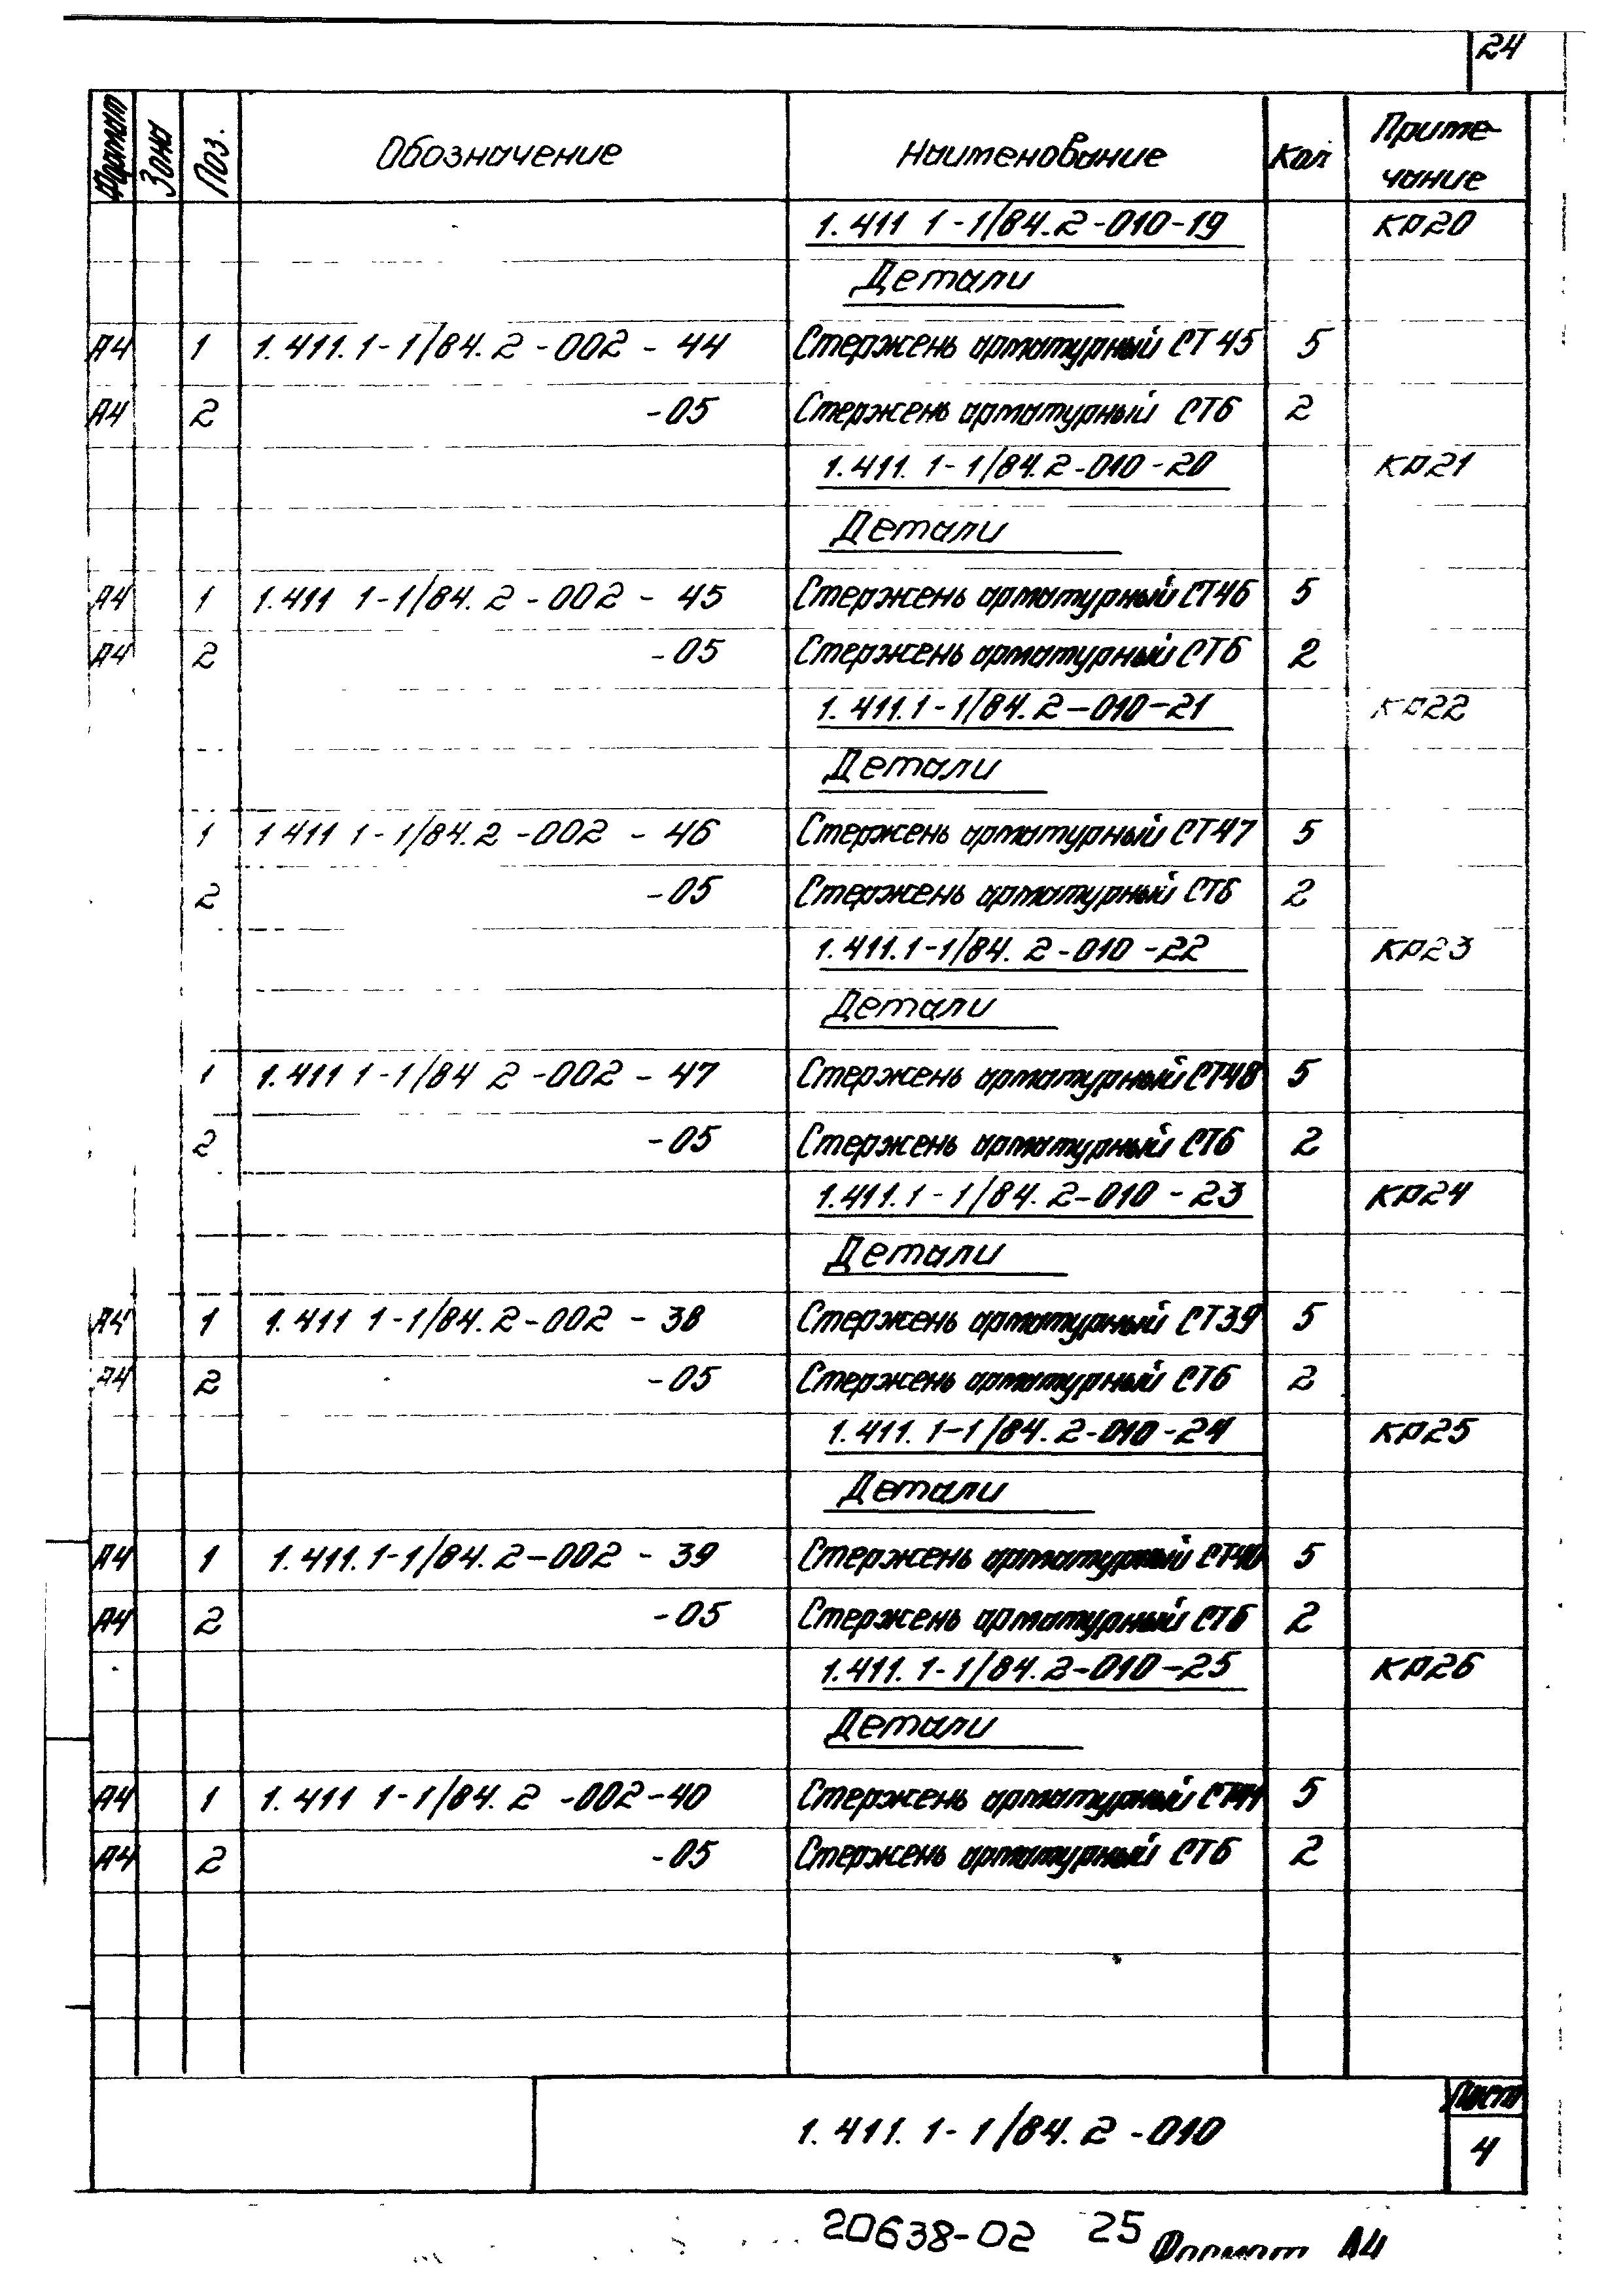 24
Формат Зона Поз. Обозначение Наименование Кол Приме-
чание
1.411 1-1/84.2-010-19 КР20
Детали
А4 1 1.411.1-1/84.2-002-44 Стержень арматурный СТ45 5
А4 2 -05 Стержень арматурный СТ6 2
1.411.1-1/84.2-010-20 КР21
Детали
А4 1 1.411 1-1/84.2-002-45 Стержень арматурный СТ46 5
А4 2 -05 Стержень арматурный СТ6 2
1.411.1-1/84.2-010-21 КР22
Детали
1 1 411 1-1/84.2-002-46 Стержень арматурный СТ47 5
2 -05 Стержень арматурный СТ6 2
1.411.1-1/84.2-010-22 КР23
Детали
1 1.411 1-1/84 2-002-47 Стержень арматурный СТ48 5
2 -05 Стержень арматурный СТ6 2
1.411.1-1/84.2-010-23 КР24
Детали
А4 1 1.411 1-1/84.2-002-38 Стержень арматурный СТ39 5
А4 2 -05 Стержень арматурный СТ6 2
1.411.1-1/84.2-010-24 КР25
Детали
А4 1 1.411.1-1/84.2-002-39 Стержень арматурный СТ40 5
А4 2 -05 Стержень арматурный СТ6 2
1.411.1-1/84.2-010-25 КР26
Детали
А4 1 1.411 1-1/84.2-002-40 Стержень арматурный СТ41 5
А4 2 -05 Стержень арматурный СТ6 2
Лист
1.411.1-1/84.2-010
4
20638-02 25 Формат А4